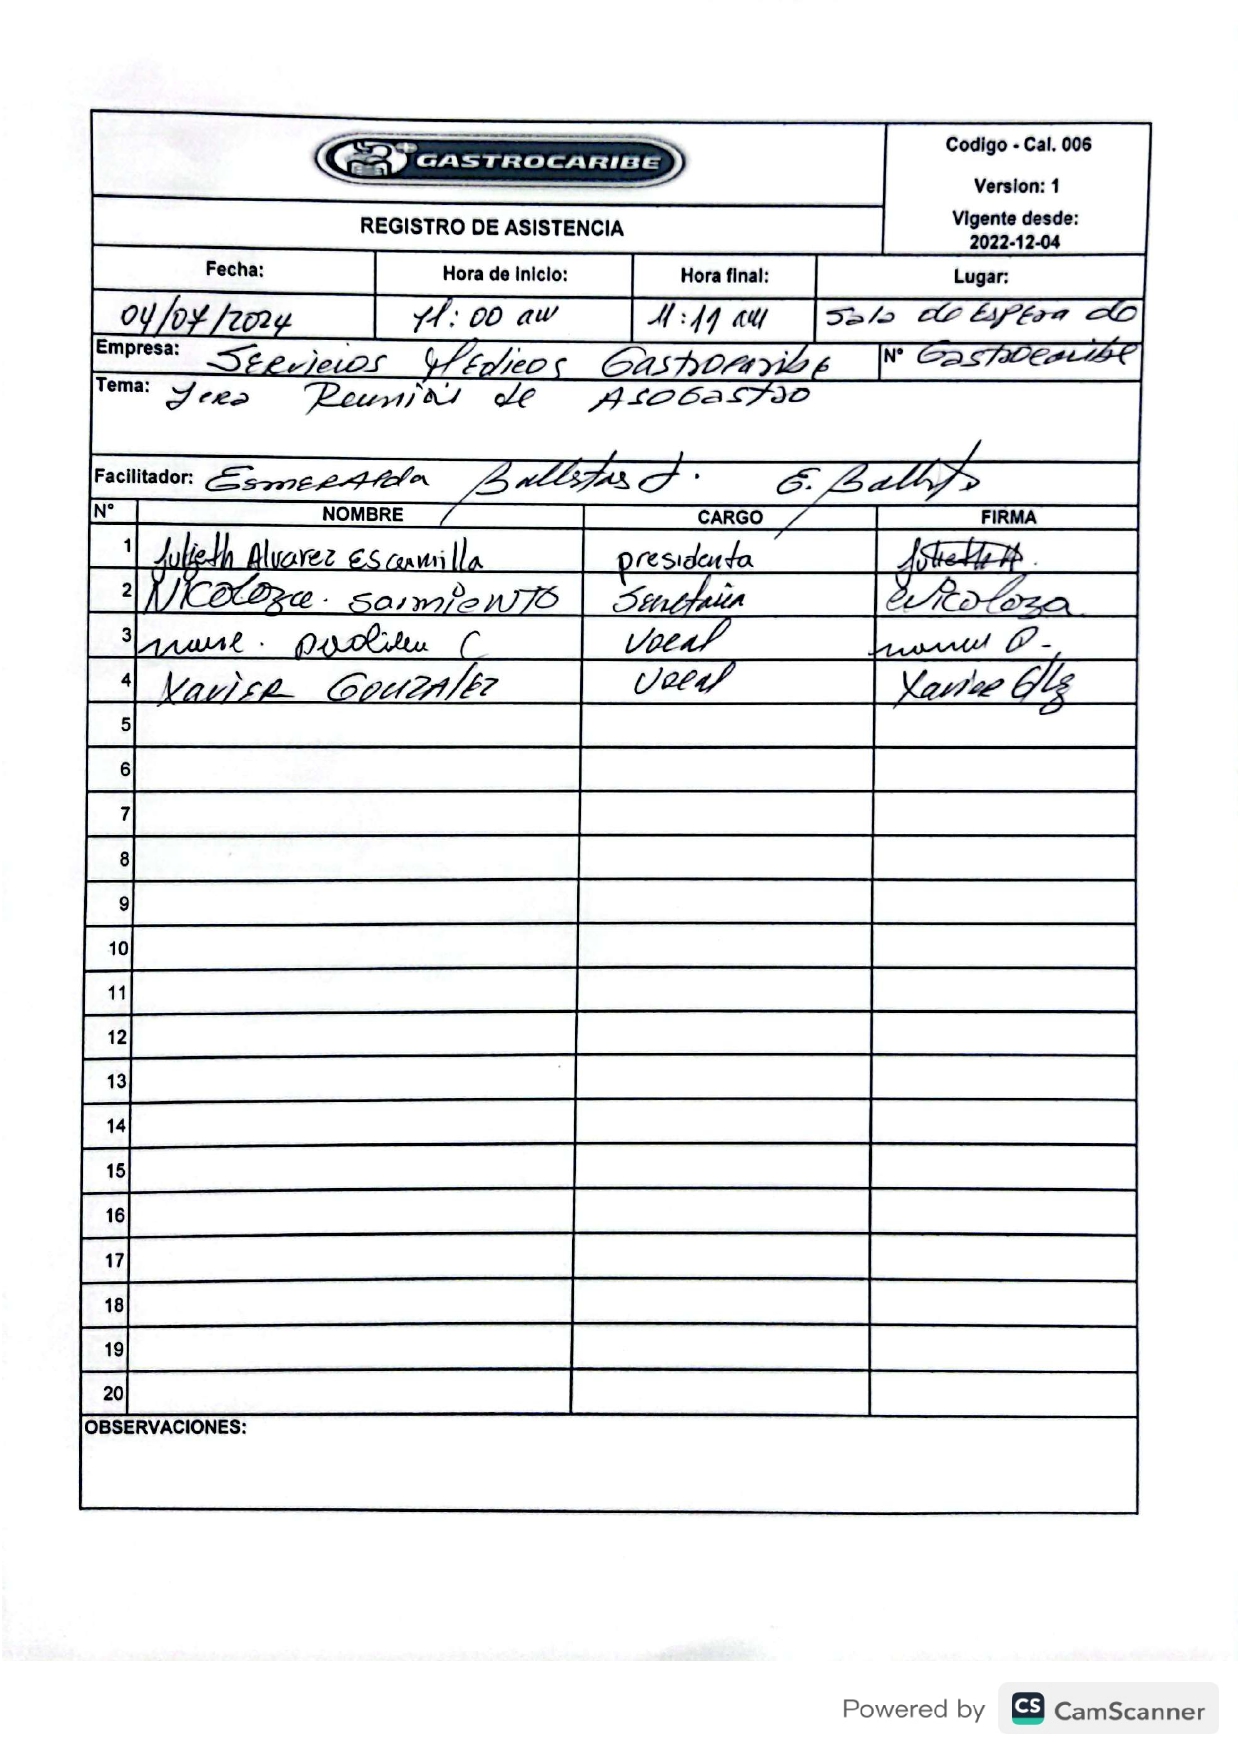 GASTROCARIBE
Codigo - Cal. 006
Version: 1
Vigente desde:
2022-12-04
REGISTRO DE ASISTENCIA
Fecha: Hora de Inicio: Hora final: Lugar:
04/07/2024 11:00 am 11:11 am Sala de Espera de
Empresa: Servicios Medicos Gastrocaribe N° Gastrocaribe
Tema: 1era Reunión de ASOGastro
Facilitador: Esmeralda Ballestas J. E. Ballestas
N° NOMBRE CARGO FIRMA
1 Julieth Alvarez Escamilla presidenta Julieth A.
2 Nicolaza Sarmiento Secretaria Nicolaza
3 C Vocal
4 Xavier Gonzalez Vocal Xavier Glz
5
6
7
8
9
10
11
12
13
14
15
16
17
18
19
20
OBSERVACIONES:
Powered by CS CamScanner